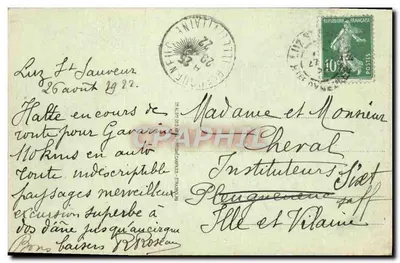 Luz St Sauveur
26 août 1922.
Halte en cours de
route pour Gavarnie
110 kms en auto
route indescriptible
paysages merveilleux
excursion superbe à
dos d'âne jusqu'au cirque
Bons baisers
Madame et Monsieur
Cheval
Instituteurs
Pleugueneuc
Ille et Vilaine
REPUBLIQUE FRANÇAISE
10c
ILLE-ET-VILAINE
CARTES-POSTALE